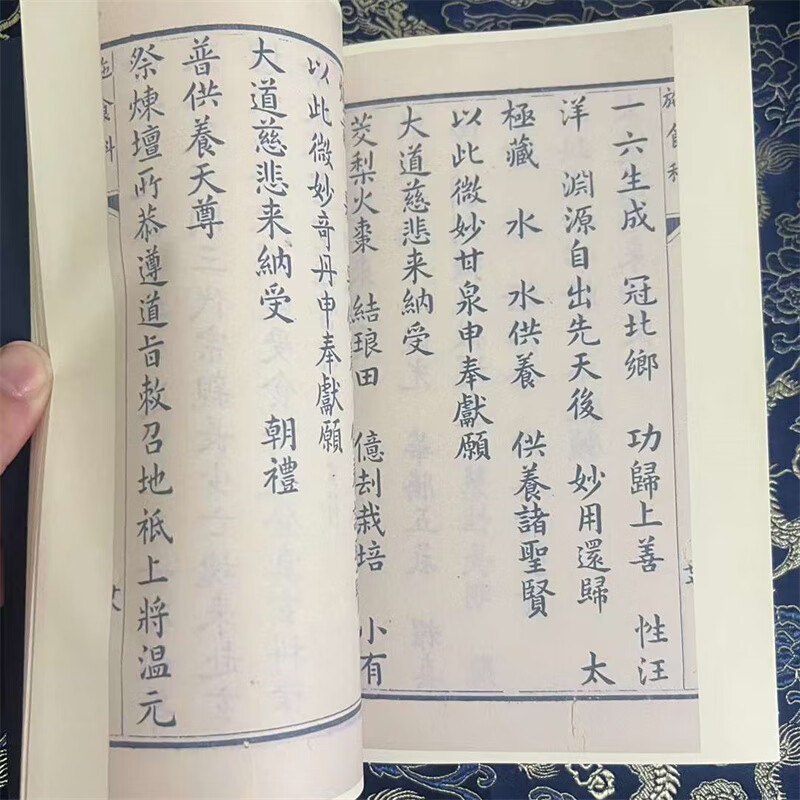 施食科
一六生成 冠北鄉 功歸上善 性汪
洋 淵源自出先天後 妙用還歸 太
極藏 水 水供養 供養諸聖賢
以此微妙甘泉申奉獻願
大道慈悲来納受
茭梨火棗 結琅田 億刦栽培 小有
以此微妙奇丹申奉獻願
大道慈悲来納受 朝禮
普供養天尊
祭煉壇所恭遵道旨敕召地祇上將温元
食科